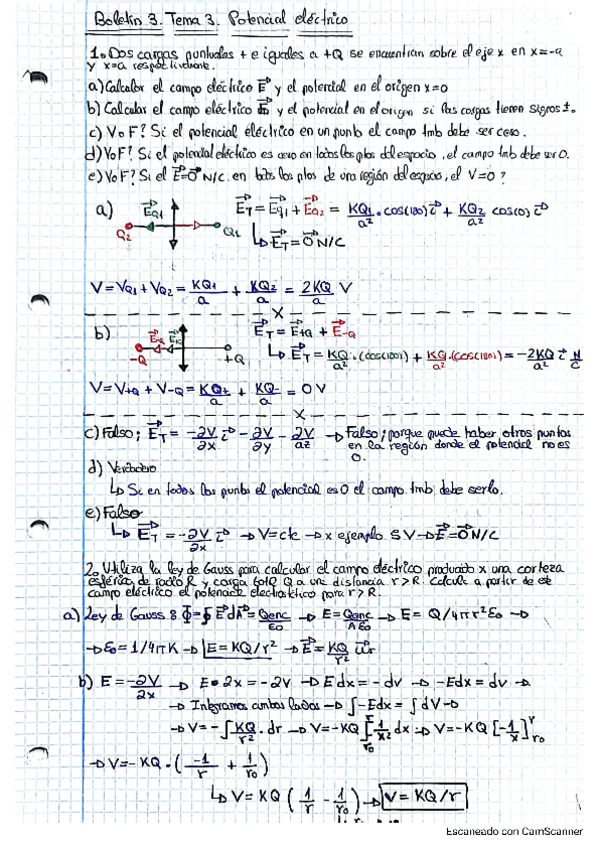 Boletín 3. Tema 3. Potencial eléctrico
1. Dos cargas puntuales + e iguales a +Q se encuentran sobre el eje x en x=-a
y x=a respectivamente.
a) Calcular el campo eléctrico E⃗ y el potencial en el origen x=0
b) Calcular el campo eléctrico E⃗ y el potencial en el origen si las cargas tienen signos ±.
c) V o F? Si el potencial eléctrico en un punto el campo tmb debe ser cero.
d) V o F? Si el potencial eléctrico es cero en todos los ptos del espacio, el campo tmb debe ser 0.
e) V o F? Si el E⃗=0⃗ N/C en todos los ptos de una región del espacio, el V=0?
a) E⃗Q1 Q2 Q1 E⃗T = E⃗Q1 + E⃗Q2 = KQ1/a² · cos(180) i⃗ + KQ2/a² cos(0) i⃗
↳ E⃗T = 0⃗ N/C
V = VQ1 + VQ2 = KQ1/a + KQ2/a = 2KQ/a V
x
b) -Q +Q E⃗T = E⃗+Q + E⃗-Q
↳ E⃗T = KQ/a² · (cos(180)) + KQ/a² · (cos(180)) = -2KQ/a² i⃗ N/C
V = V+Q + V-Q = KQ+/a + KQ-/a = 0 V
x
c) Falso; E⃗T = -∂V/∂x i⃗ - ∂V/∂y - ∂V/∂z → Falso; porque puede haber otros puntos
en la región donde el potencial no es
0.
d) Verdadero
↳ Si en todos los puntos el potencial es 0 el campo tmb debe serlo.
e) Falso
↳ E⃗T = -∂V/∂x i⃗ → V=cte → x ejemplo 5V → E⃗=0⃗ N/C
2. Utiliza la ley de Gauss para calcular el campo eléctrico producido x una corteza
esférica de radio R y carga total Q a una distancia r > R. Calcule a partir de este
campo eléctrico el potencial electrostático para r > R.
a) Ley de Gauss: Φ = ∮ E⃗ dA⃗ = Qenc/ε0 → E = Qenc/Aε0 → E = Q/4πr²ε0 →
→ ε0 = 1/4πK → E = KQ/r² → E⃗ = KQ/r² u⃗r
b) E = -∂V/∂x → E·∂x = -∂V → E dx = -dv → -Edx = dv →
→ Integramos ambos lados → ∫-Edx = ∫dV →
→ V = -∫KQ/r² · dr → V = -KQ ∫ 1/x² dx → V = -KQ [-1/x] r r0
→ V = -KQ · (-1/r + 1/r0)
↳ V = KQ (1/r - 1/r0) → V = KQ/r
Escaneado con CamScanner